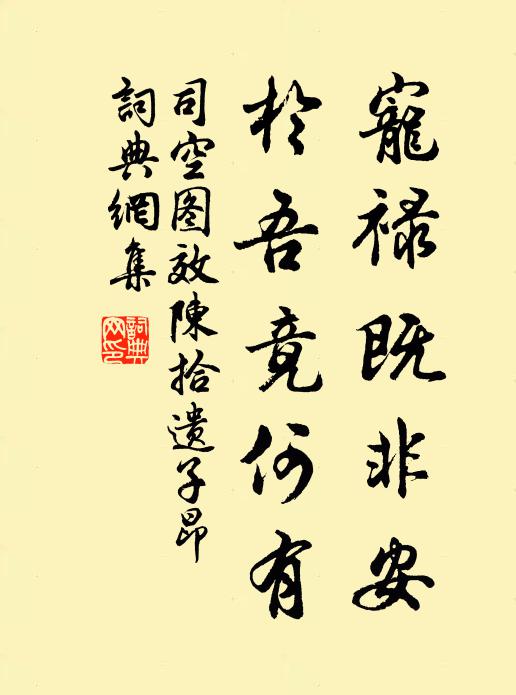 寵禄既非安
於吾竟何有
司空图效陳拾遺子昂
詞典網集
詞典網印